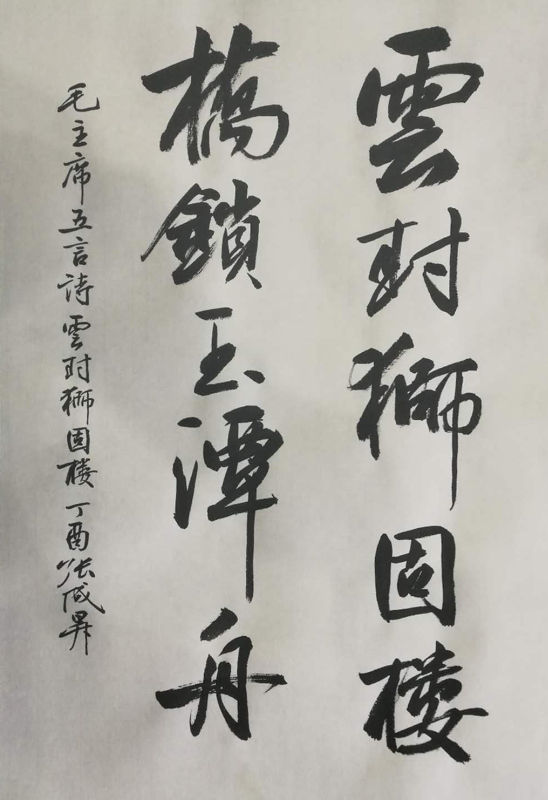 雲封獅固楼
橋鎖玉潭舟
毛主席五言詩雲封獅固楼丁酉张成昇